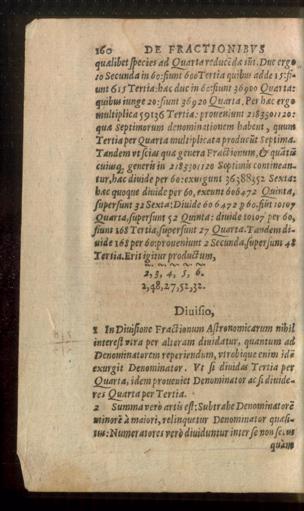 160 DE FRACTIONIBVS
qualibet species ad Quarta reducēda sūt. Duc ergo
10 Secunda in 60: fiunt 600 Tertia quibus adde 15: fi-
unt 615 Tertia: hæc duc in 60: fiunt 36900 Quarta:
quibus iunge 20: fiunt 36920 Quarta. Per hæc ergo
multiplica 59136 Tertia: proueniunt 2183301120:
quæ Septimorum denominationem habent, quum
Tertia per Quarta multiplicata producāt Septima.
Tandem vt scias quæ genera Fractionum, & quātū
cuiusq; generis in 2183301120 Septimis continean-
tur, hæc diuide per 60: exurgunt 36388352 Sexta:
hæc quoque diuide per 60, exeunt 606472 Quinta,
supersunt 32 Sexta: Diuide 606472 p 60. fiūt 10107
Quarta, supersunt 52 Quinta: diuide 10107 per 60,
fiunt 168 Tertia, supersunt 27 Quarta. Tandem di-
uide 168 per 60: proueniunt 2 Secunda, supersunt 48
Tertia. Erit igitur productum,
2, 3, 4, 5, 6.
2, 48, 27, 52, 32.
Diuisio,
1 In Diuisione Fractionum Astronomicarum nihil
interest vtra per alteram diuidatur, quantum ad
Denominatorem reperiendum, vtrobique enim idē
exurgit Denominator. Vt si diuidas Tertia per
Quarta, idem proueniet Denominator ac si diuide-
res Quarta per Tertia.
2 Summa verò artis est: Subtrahe Denominatorē
minorē à maiori, relinquetur Denominator quæsi-
tus: Numeratores verò diuiduntur inter se non secus
quàm